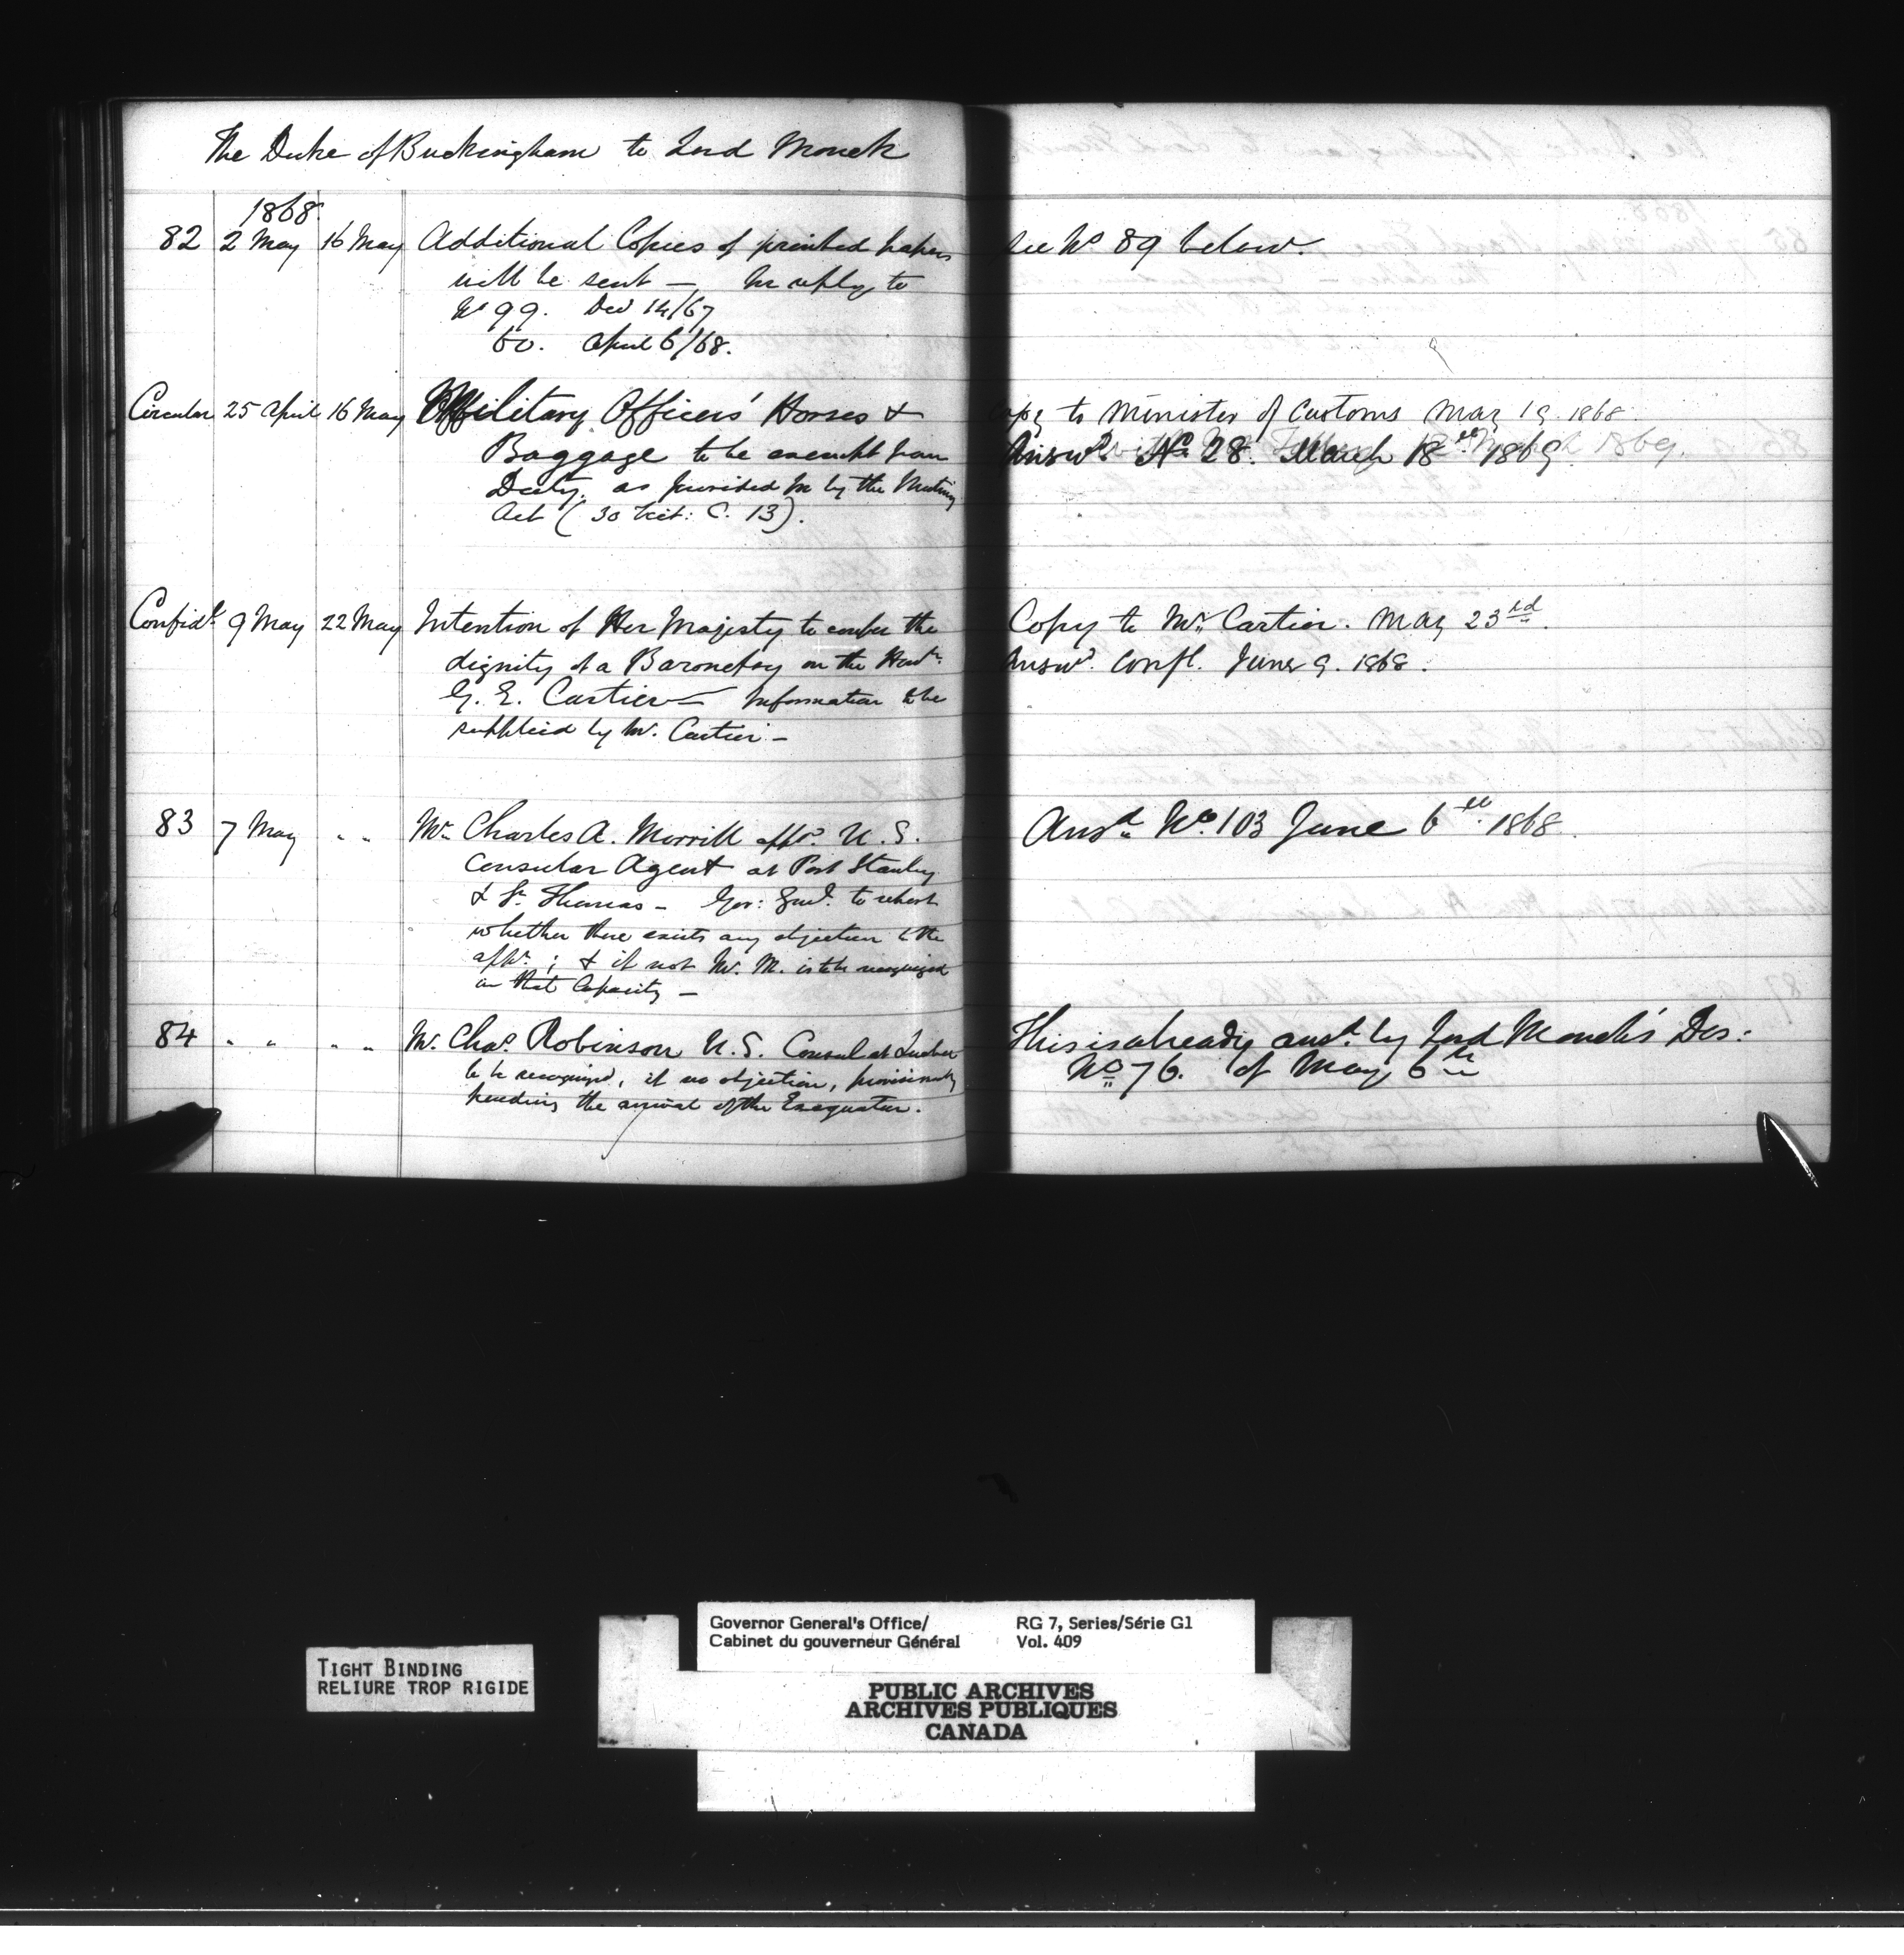 The Duke of Buckingham to Lord Monck
1868.
82 2 May 16 May Additional Copies of printed papers
will be sent — In reply to
No 99. Dec 14/67
60. April 6/68.
see No 89 below.
Circular 25 April 16 May Military Officers' Horses &
Baggage to be exempt from
Duty, as provided for by the Mutiny
Act (30 Vict: C. 13).
Copy to Minister of Customs May 19. 1868
Answd. No. 28. March 18th 1869.
Confidl. 9 May 22 May Intention of Her Majesty to confer the
dignity of a Baronetcy on the Honble.
G. E. Cartier — Information to be
supplied by Mr. Cartier. —
Copy to Mr. Cartier. May 23rd.
Answd. Confl. June 9. 1868.
83 7 May " " Mr. Charles A. Morrill appd. U. S.
Consular Agent at Port Stanley
& St. Thomas — Gov: Genl. to report
whether there exists any objection to the
appt. ; & if not Mr. M. is to be recognized
in that Capacity —
Ansd. No. 103 June 6th 1868.
84 " " " " Mr. Chas. Robinson U. S. Consul at Quebec
to be recognized, if no objection, provisionally
pending the arrival of the Exequatur.
This is already ansd. by Lord Monck's Des:
No. 76. of May 6th
TIGHT BINDING
RELIURE TROP RIGIDE
Governor General's Office/
Cabinet du gouverneur Général
RG 7, Series/Série G1
Vol. 409
PUBLIC ARCHIVES
ARCHIVES PUBLIQUES
CANADA